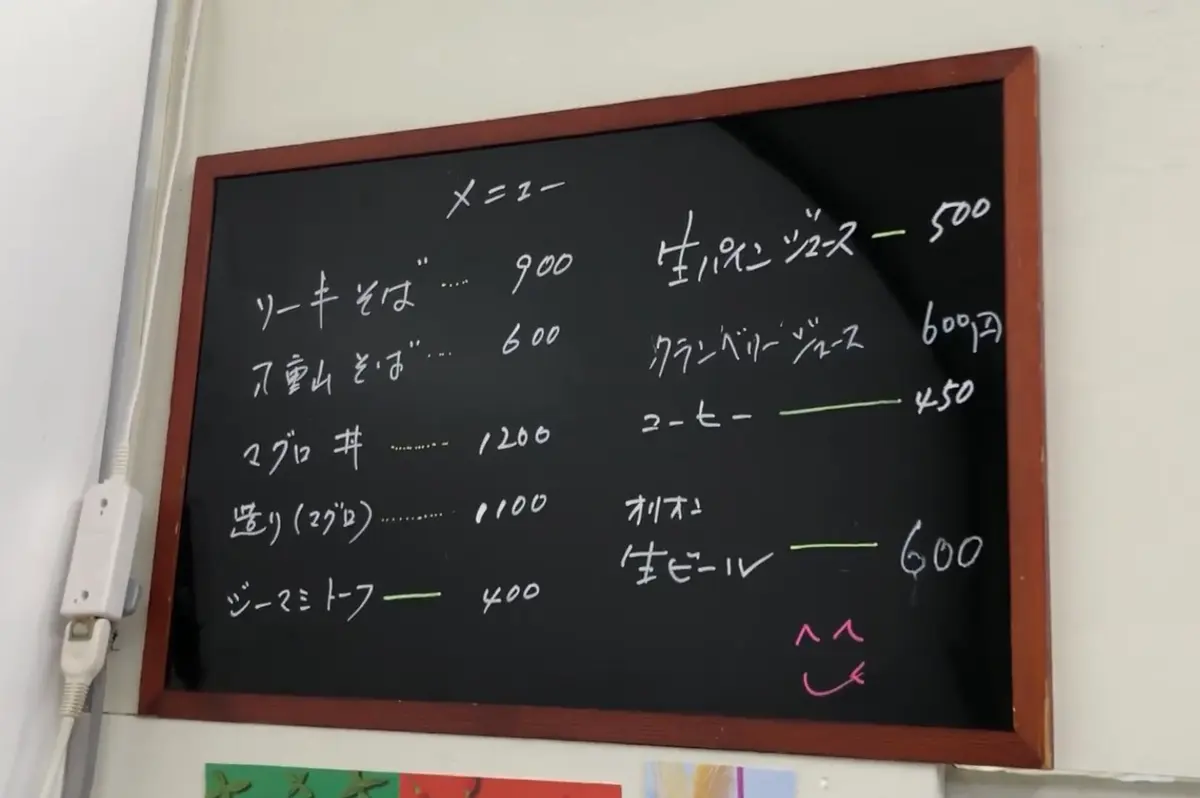 メニュー
ソーキそば ..... 900
八重山そば ... 600
マグロ丼 ......... 1200
造り(マグロ) ........... 1100
ジーマミトーフ — 400
生パインジュース — 500
クランベリージュース 600円
コーヒー — 450
オリオン
生ビール — 600